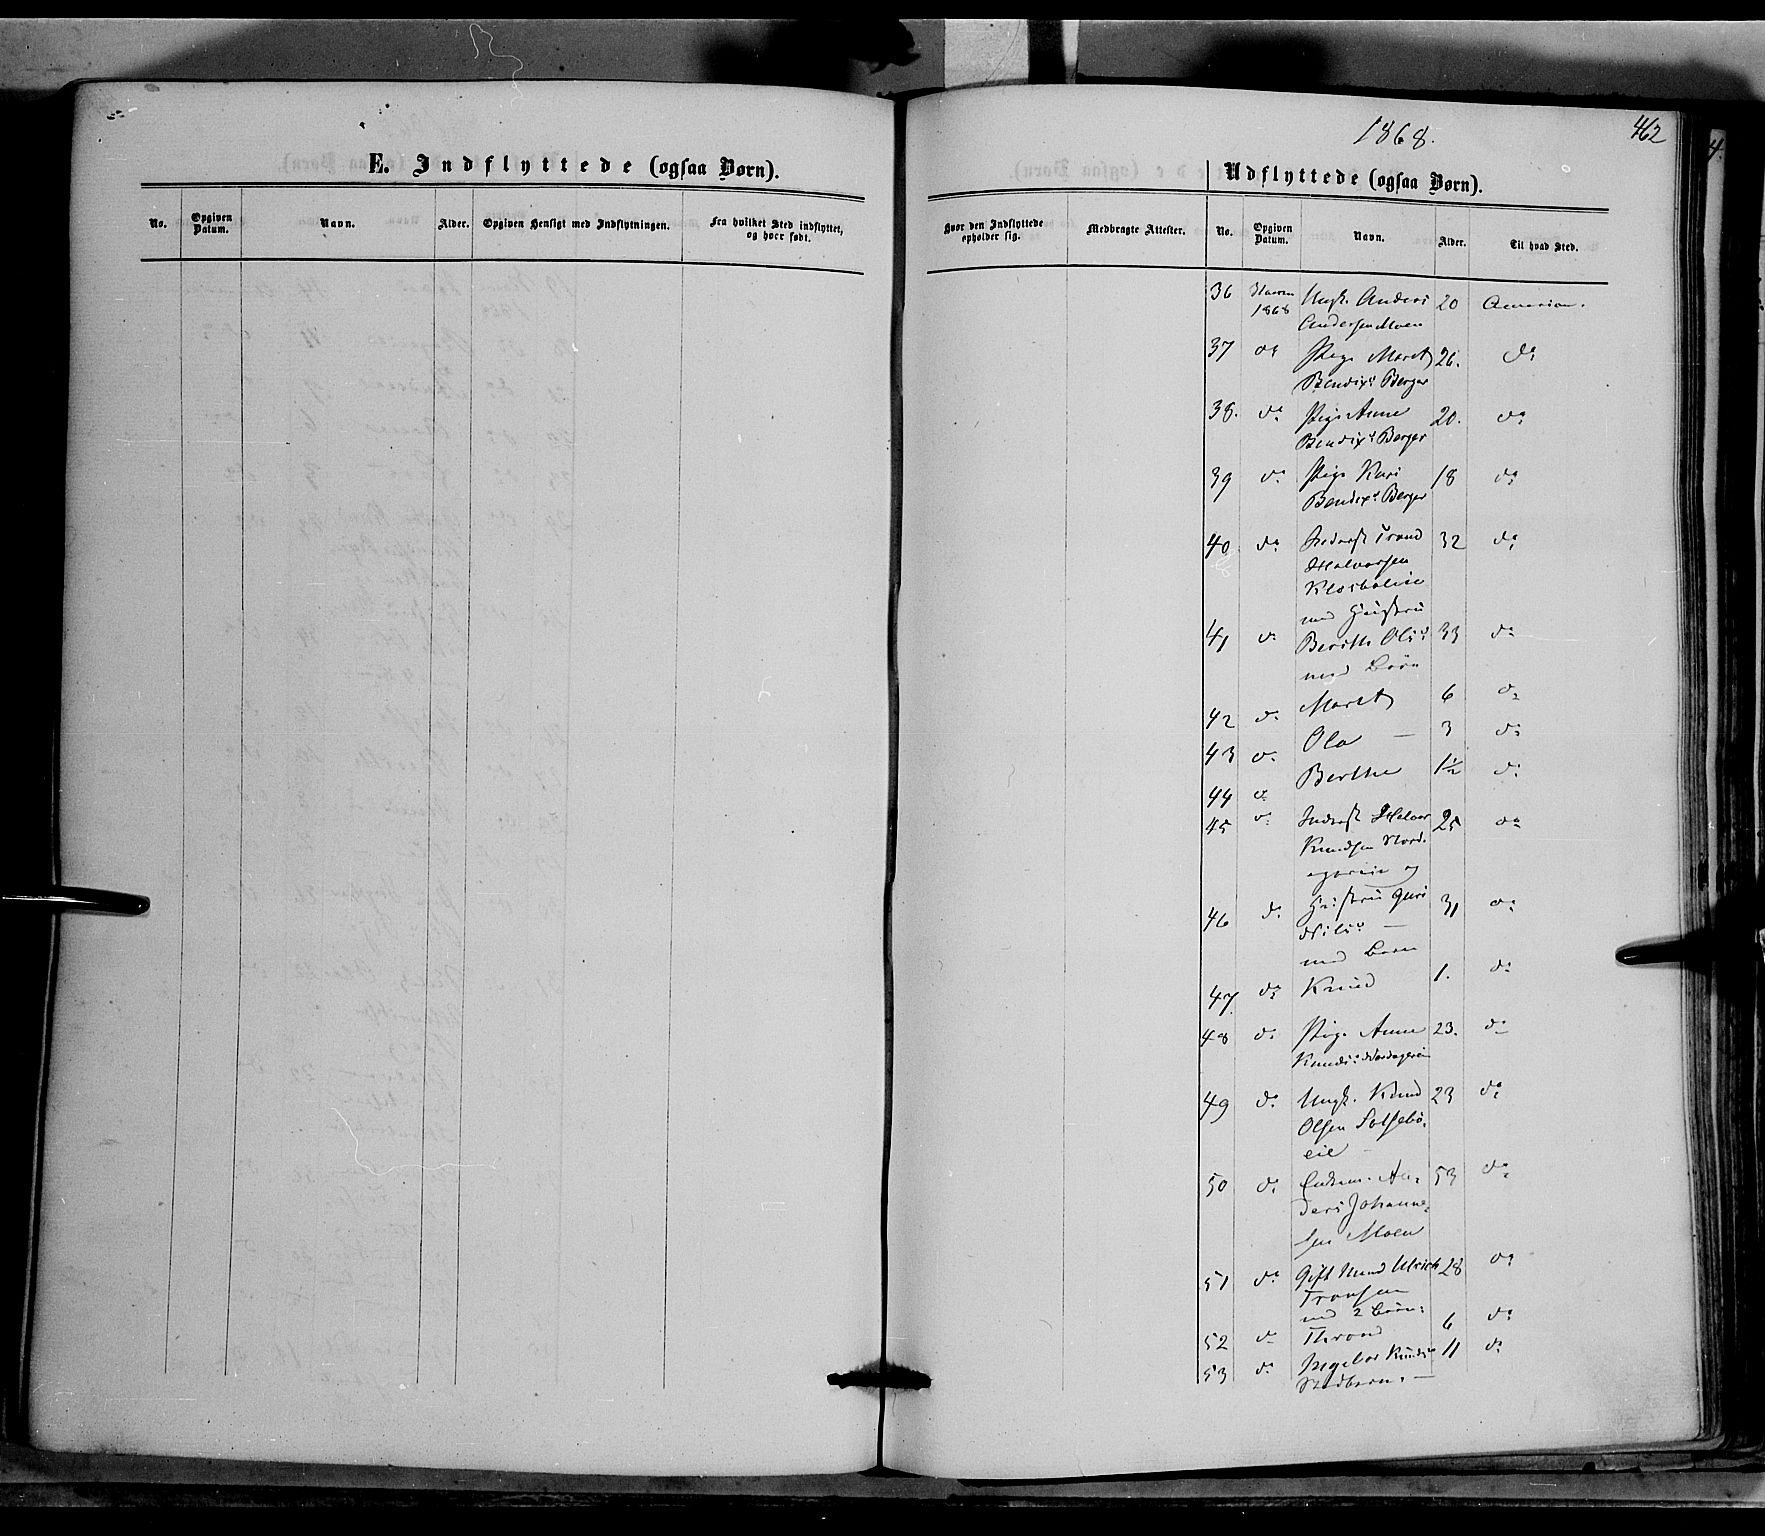 1868.
462
E. Indflyttede (ogsaa Børn).
Udflyttede (ogsaa Børn).
No.
Opgiven Datum.
Navn.
Alder.
Opgiven Hensigt med Indflytningen.
Fra hvilket Sted indflyttet, og hvor født.
Hvor den Indflyttede opholder sig.
Medbragte Attester.
No.
Opgiven Datum.
Navn.
Alder.
Til hvad Sted.
36 1868 Ungk. Anders 20
Andersen Moen
37 do Pige Marit 26. do
Bendixd Berger
38. do Pige Anne 20. do
Bendixd Berger
39 do Pige Kari 18 do
Bendixd Berger
40 do Inderst Trond 32 do
Halvorsen
med Hustru
41 do Berithe Olsd 33 do
med Børn
42 do Marit 6 do
43 do Ola — 3 do
44 do Berthe 1½ do
45 do Inderst Halvor 25 do
Knudsen Nord-
og
46 do Hustru Guri 31 do
Nilsd —
med Barn
47 do Knud 1. do
48 do Pige Anne 23. do
Knudsd
49 do Ungk. Knud 23 do
Olsen
eie
50 do Enkem. An- 53 do
ders Johanne-
sen Moen
51 do Gift Mand Ulrich 28 do
Tronsen
med 2 Børn:
52 do Thrond 6 do
53 do Ingebor Knudsd 11 do